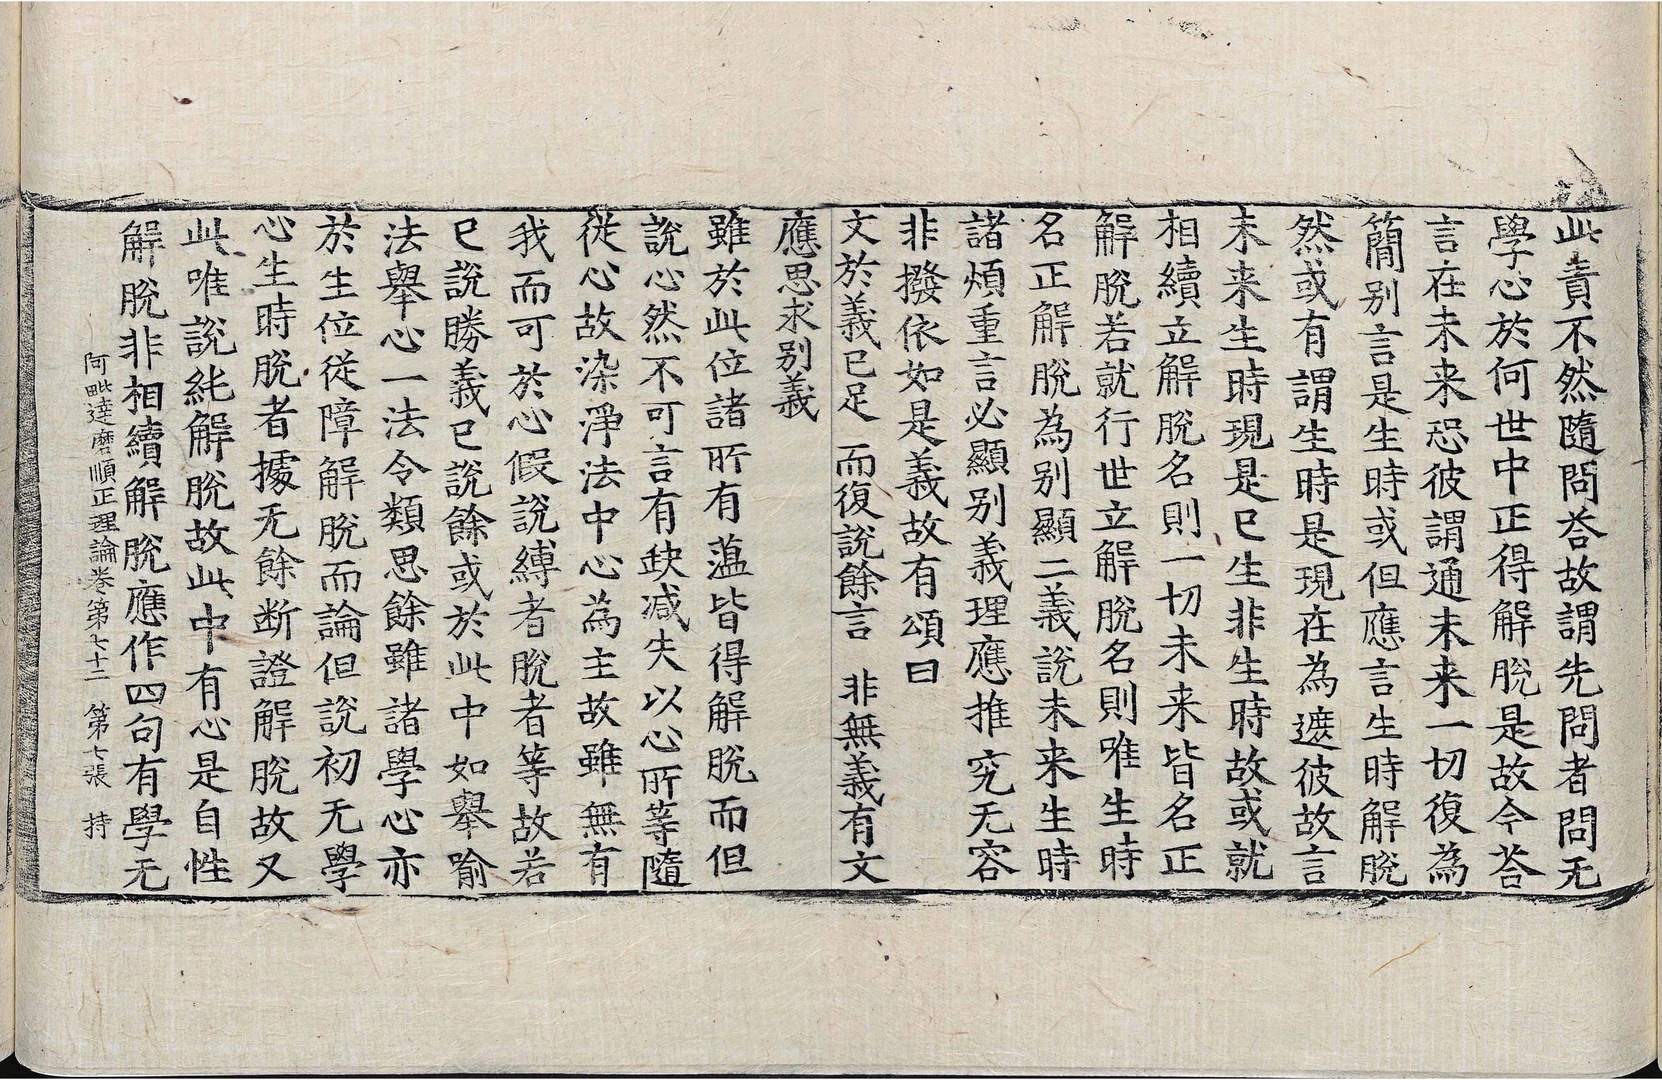 此責不然隨問荅故謂先問者問无
學心於何世中正得解脫是故今荅
言在未来恐彼謂通未来一切復為
簡别言是生時或但應言生時解脫
然或有謂生時是現在為遮彼故言
未来生時現是已生非生時故或就
相續立解脫名則一切未来皆名正
解脫若就行世立解脫名則唯生時
名正解脫為别顯二義說未来生時
諸煩重言必顯别義理應推究无容
非撥依如是義故有頌曰
文於義已足　而復說餘言　非無義有文
應思求别義
雖於此位諸所有薀皆得解脫而但
說心然不可言有缺减失以心所等隨
從心故染淨法中心為主故雖無有
我而可於心假說縛者脫者等故若
已說勝義已說餘或於此中如舉喻
法舉心一法令類思餘雖諸學心亦
於生位從障解脫而論但說初无學
心生時脫者據无餘断證解脫故又
此唯說純解脫故此中有心是自性
解脫非相續解脫應作四句有學无
阿毗達磨順正理論卷第七十二　第七張　持